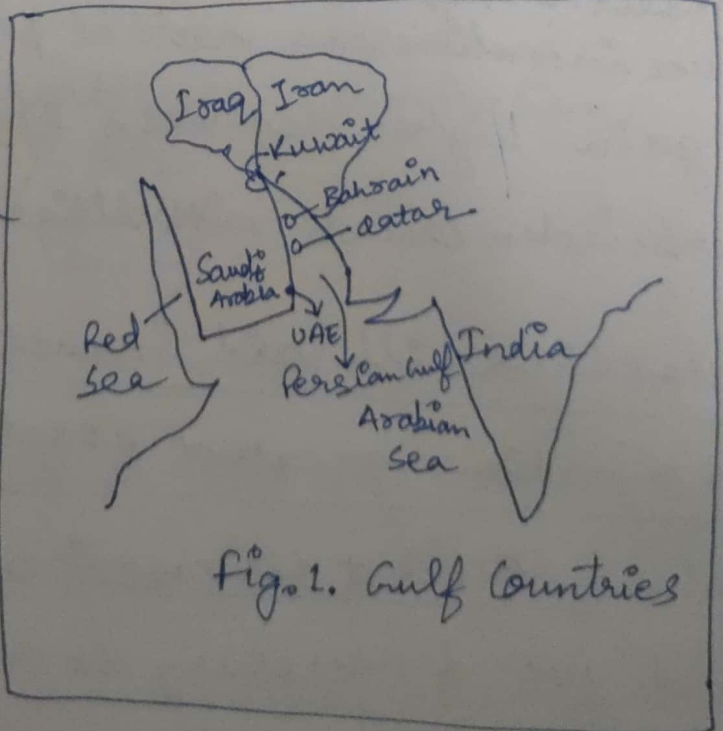 Iraq
Iran
Kuwait
Bahrain
Qatar
Saudi
Arabia
UAE
Red
Sea
Persian Gulf
India
Arabian
Sea
Fig. 1. Gulf Countries